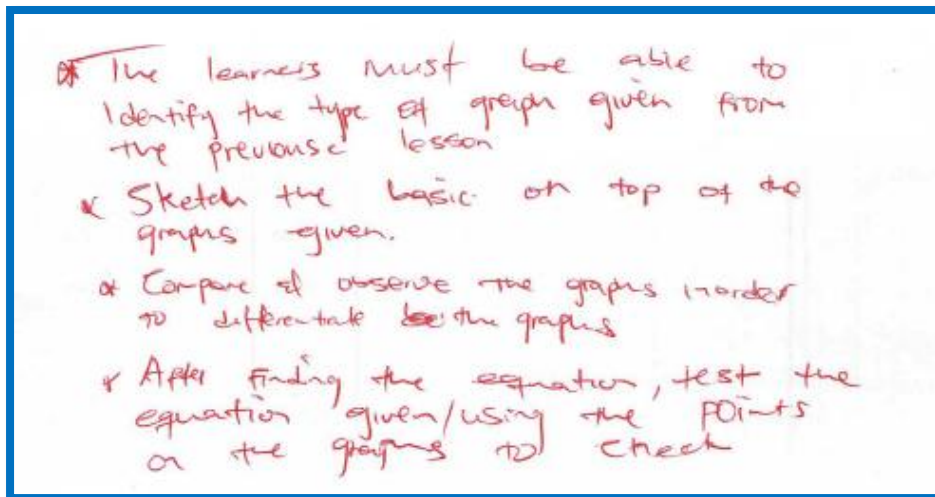 * The learners must be able to
Identify the type of graph given from
the previouse lesson
* Sketch the basic on top of the
graphs given.
* Compare & observe the graphs inorder
to differentiate the graphs
* After finding the equation, test the
equation given/using the points
on the graphs to check